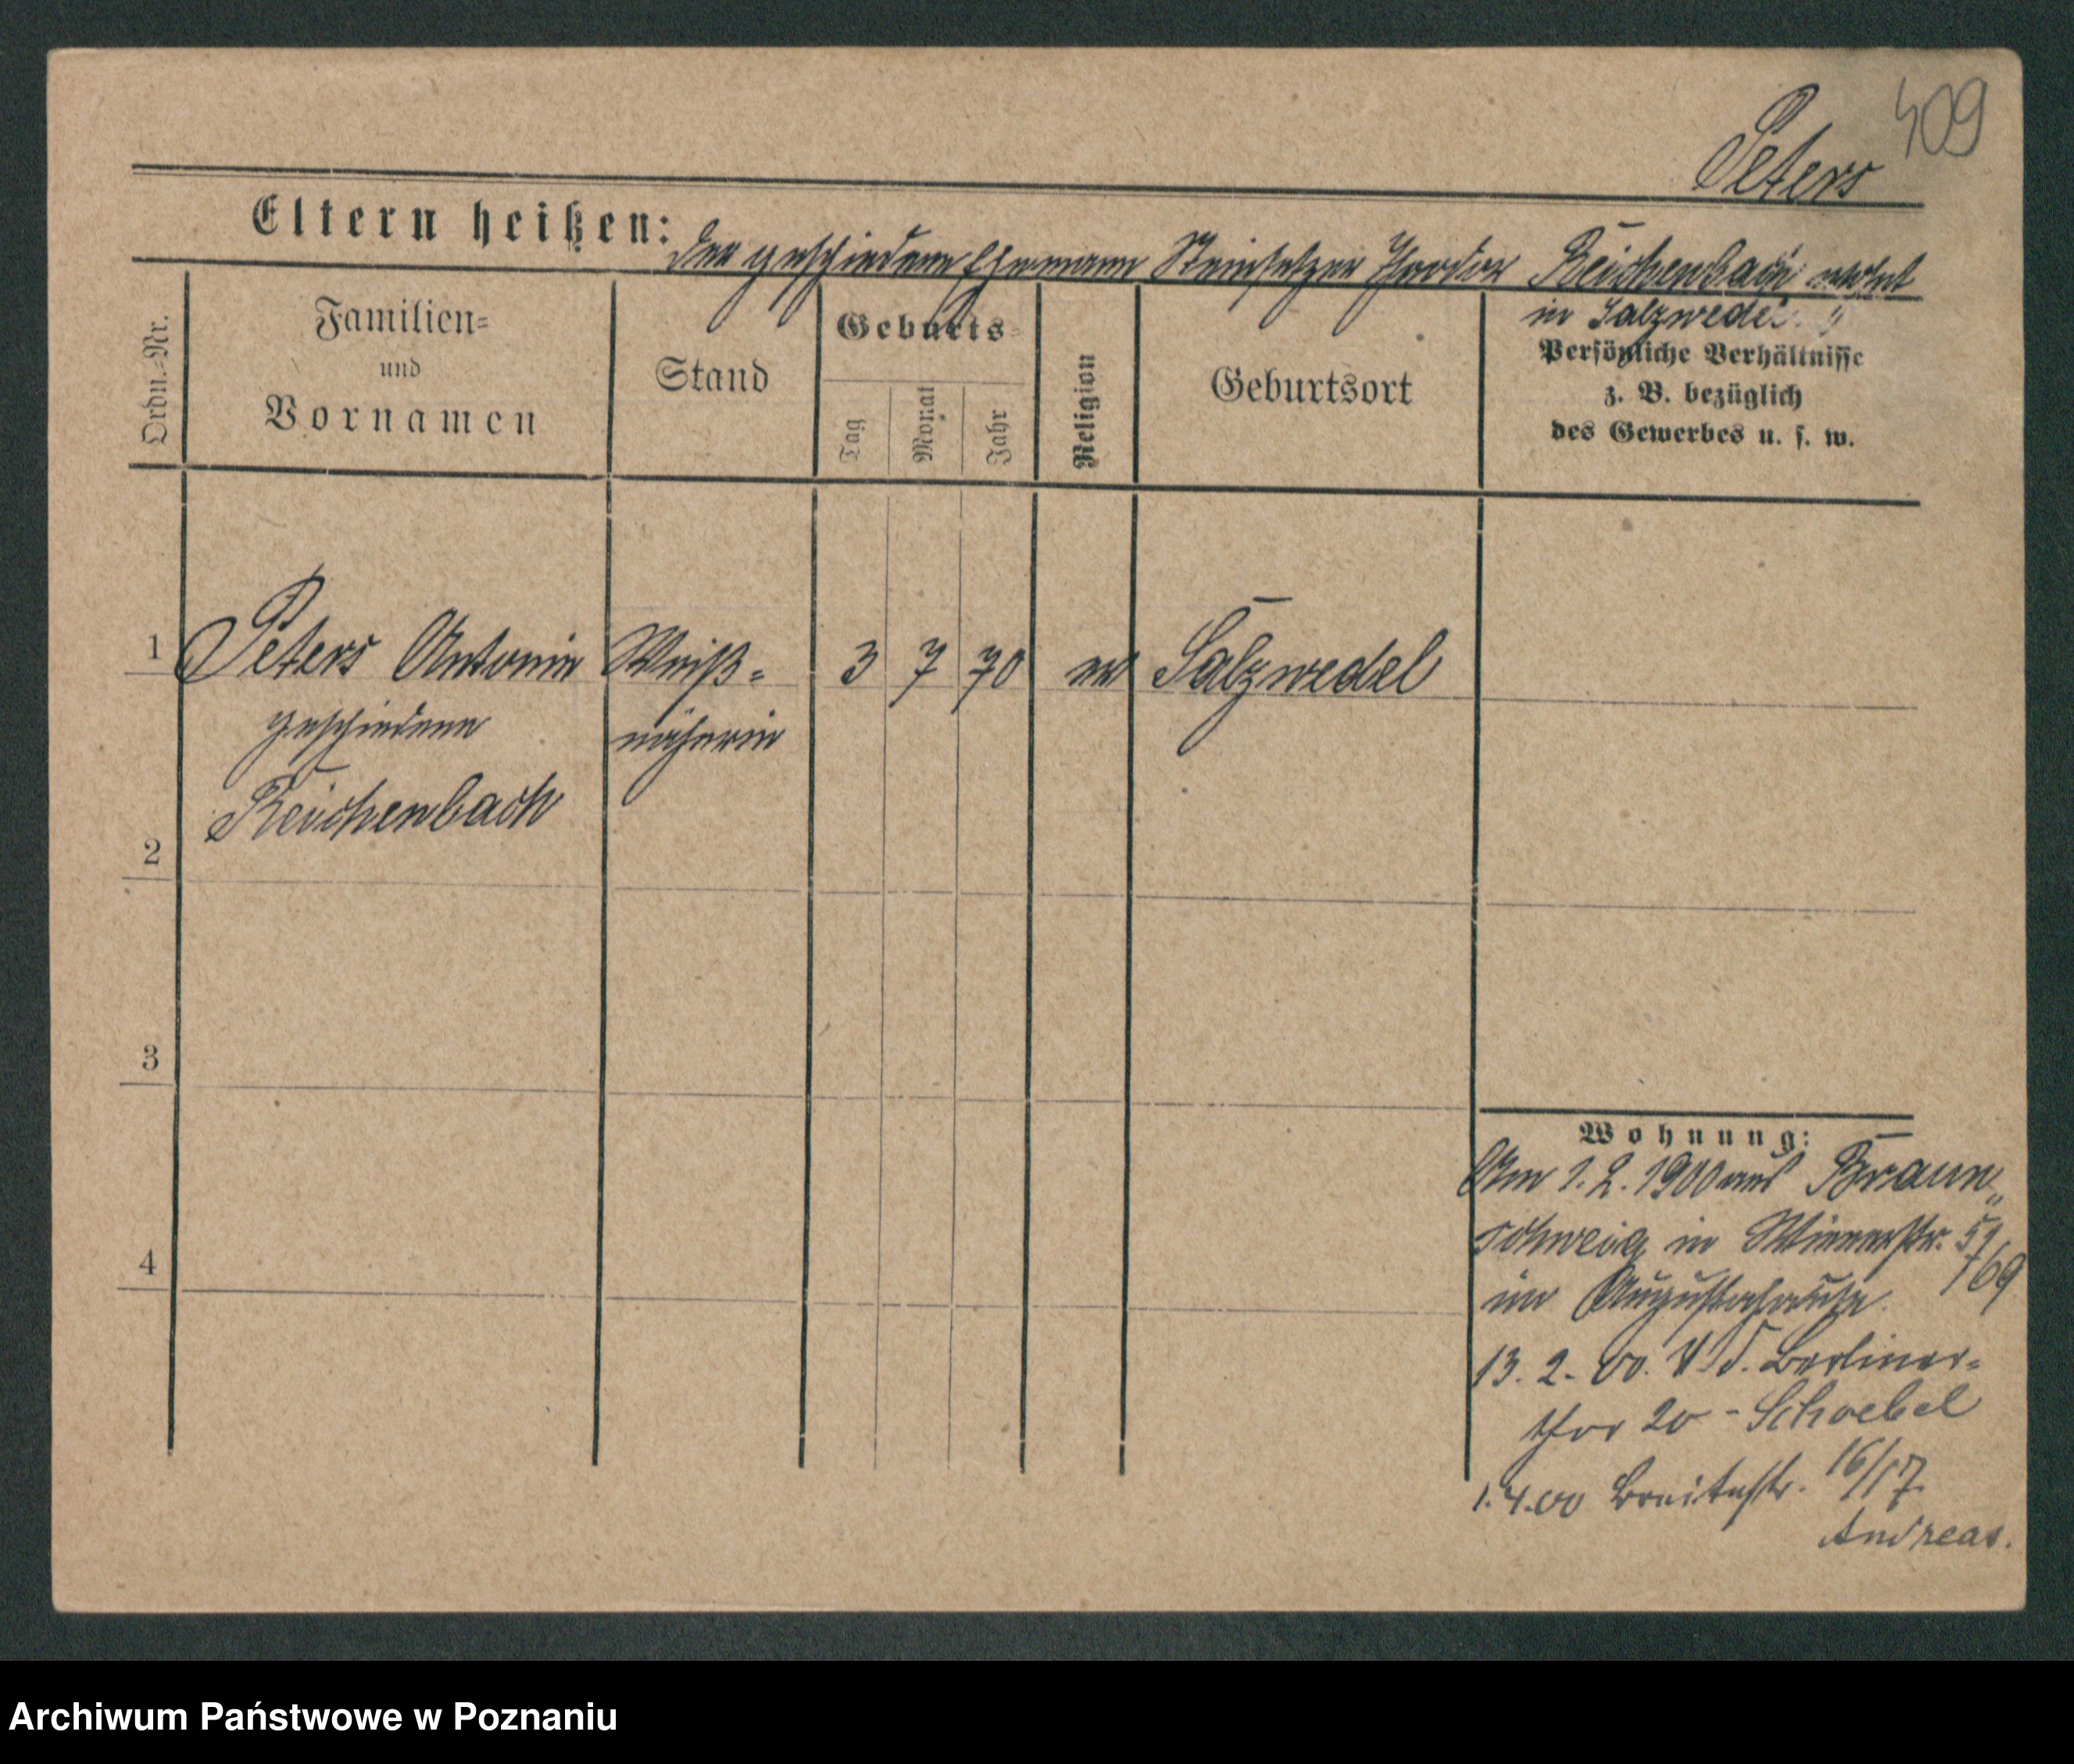 409
Peters
Eltern heißen: der geschiedene Ehemann Steinsetzer Theodor Reichenbach wohnt
in Salzwedel.
Ordn.-Nr.
Familien-
und
Vornamen
Stand
Geburts-
Tag
Monat
Jahr
Religion
Geburtsort
Persönliche Verhältnisse
z. B. bezüglich
des Gewerbes u. s. w.
1 Peters Antonie Weiß- 3 7 70 ev Salzwedel
geschiedene näherin
Reichenbach
2
3
4
Wohnung:
Am 1.2.1900 aus Braun„
schweig in Wienerstr. 57
/69
im Augustahause.
13.2.00. V. d. Berliner-
thor 20 - Schoebel
1.4.00 Breitestr. 16/17
Andreas.
Archiwum Państwowe w Poznaniu